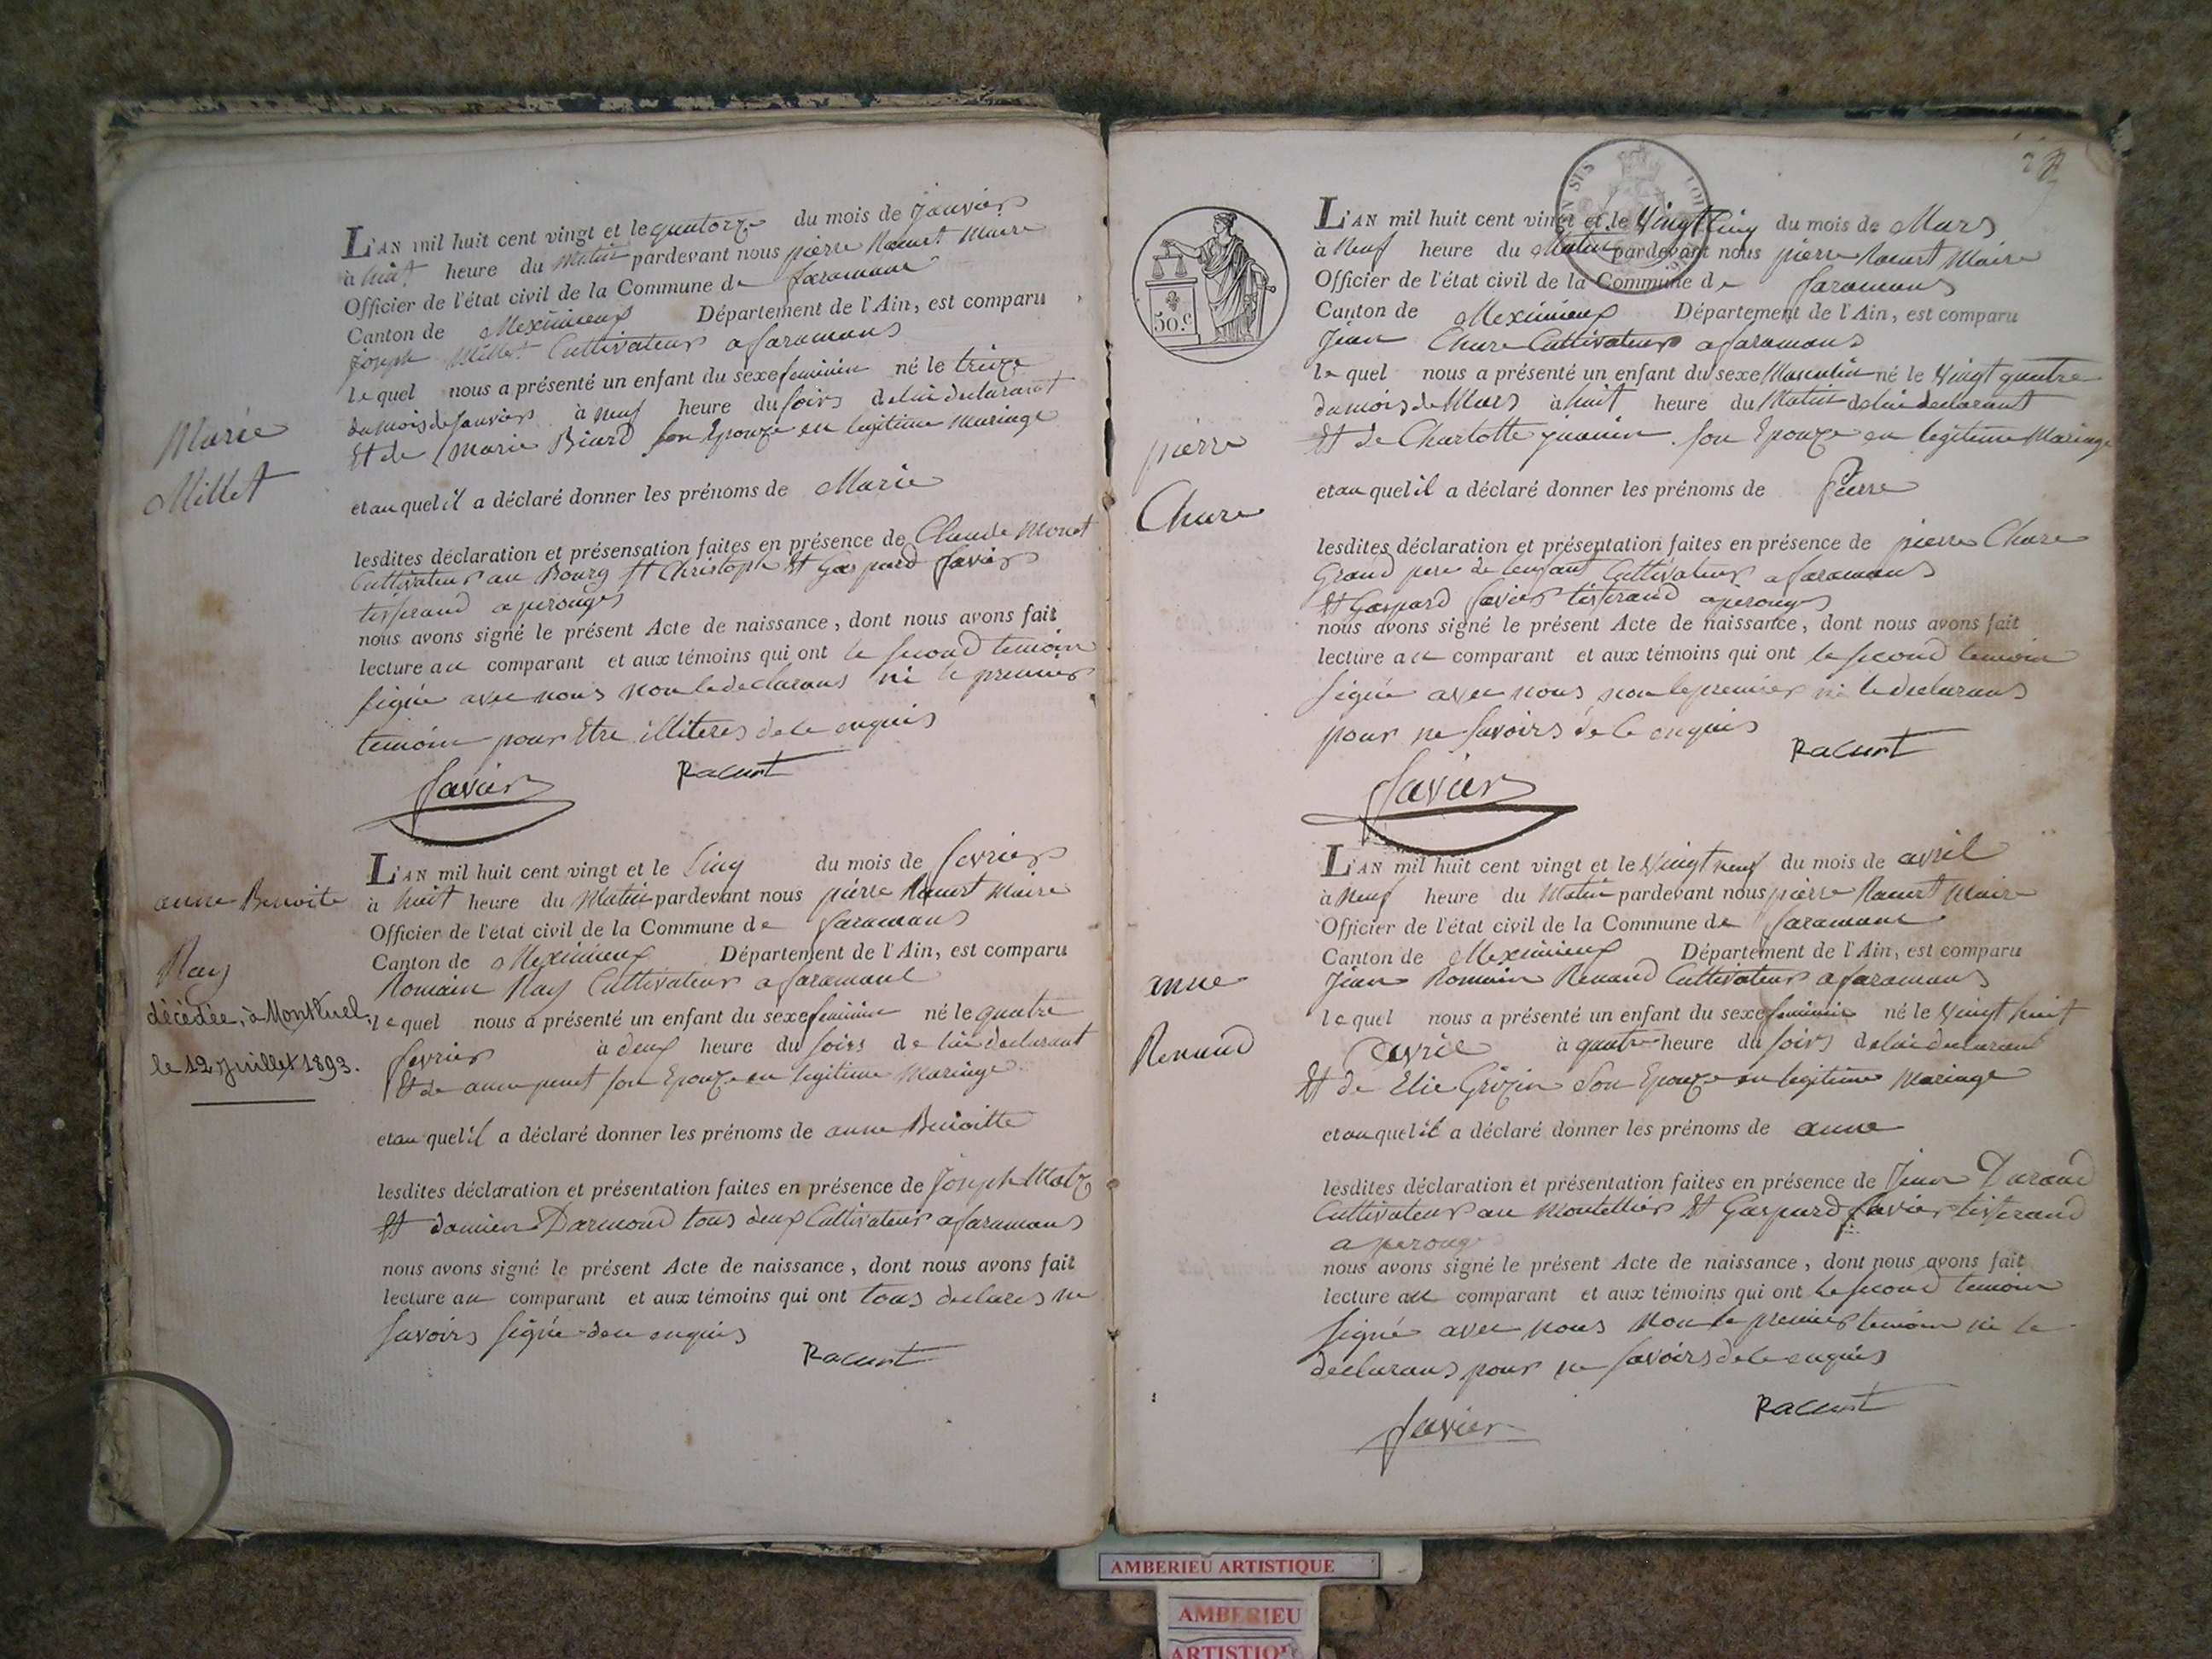 Marie
Millet
L'AN mil huit cent vingt et le quatorze du mois de janvier
à huit heure du matin pardevant nous pierre Racurt Maire
Officier de l'état civil de la Commune de faramans
Canton de Meximieux Département de l'Ain, est comparu
joseph Millet Cultivateur a faramans
lequel nous a présenté un enfant du sexe feminin né le treize
du mois de janvier à neuf heure du soirs de lui declarant
Et de Marie Biard son Epouze en legitime mariage
et au quel il a déclaré donner les prénoms de Marie
lesdites déclaration et présensation faites en présence de Claude Monet
Cultivateur au Bourg St Christophe Et Gaspard favier
tisserand a perouges
nous avons signé le présent Acte de naissance, dont nous avons fait
lecture au comparant et aux témoins qui ont le second temoin
signé avec nous non le declarans ni le premier
temoin pour Etre illiteres de ce enquis
favier Racurt
anne Benoite
Ray
décédée, à Montluel,
le 12 Juillet 1893.
L'AN mil huit cent vingt et le Cinq du mois de fevrier
à huit heure du Matin pardevant nous pierre Racurt Maire
Officier de l'état civil de la Commune de faramans
Canton de Meximieux Département de l'Ain, est comparu
Romain Ray Cultivateur a faramans
lequel nous a présenté un enfant du sexe feminin né le quatre
fevrier à deux heure du soirs de lui declarant
Et de anne penet son Epouze en legitime Mariage
et au quel il a déclaré donner les prénoms de anne Benoitte
lesdites déclaration et présentation faites en présence de Joseph
Et damien Darmond tous deux Cultivateur a faramans
nous avons signé le présent Acte de naissance, dont nous avons fait
lecture au comparant et aux témoins qui ont tous declares ne
savoirs signé de ce enquis
Racurt
50.c
pierre
Chure
L'AN mil huit cent vingt et le Vingt Cinq du mois de Mars
à Neuf heure du Matin pardevant nous pierre Racurt Maire
Officier de l'état civil de la Commune de faramans
Canton de Meximieux Département de l'Ain, est comparu
Jean Chure Cultivateur a faramans
lequel nous a présenté un enfant du sexe Masculin né le Vingt quatre
du mois de Mars à huit heure du Matin de lui declarant
Et de Charlotte son Epouze en legitime Mariage
et au quel il a déclaré donner les prénoms de Pierre
lesdites déclaration et présentation faites en présence de pierre Chure
Grand pere de lenfant Cultivateur a faramans
Et Gaspard favier tisserand a perouges
nous avons signé le présent Acte de naissance, dont nous avons fait
lecture au comparant et aux témoins qui ont le second temoin
signé avec nous non le premier ni le declarans
pour ne savoirs de ce enquis
Racurt
favier
anne
Renaud
L'AN mil huit cent vingt et le Vingt neuf du mois de avril
à Neuf heure du Matin pardevant nous pierre Racurt Maire
Officier de l'état civil de la Commune de faramans
Canton de Meximieux Département de l'Ain, est comparu
Jean Romain Renaud Cultivateur a faramans
lequel nous a présenté un enfant du sexe feminin né le Vingt huit
avril à quatre heure du soirs de lui declarant
Et de Elie Grizin son Epouze en legitime Mariage
et au quel il a déclaré donner les prénoms de anne
lesdites déclaration et présentation faites en présence de Jean Durand
Cultivateur au Montellier Et Gaspard favier tisserand
a perouge
nous avons signé le présent Acte de naissance, dont nous avons fait
lecture au comparant et aux témoins qui ont le second temoin
signé avec nous Non le premier temoin ni le
declarans pour ne savoirs de ce enquis
Racurt
favier
AMBERIEU ARTISTIQUE
AMBERIEU
ARTISTIQUE